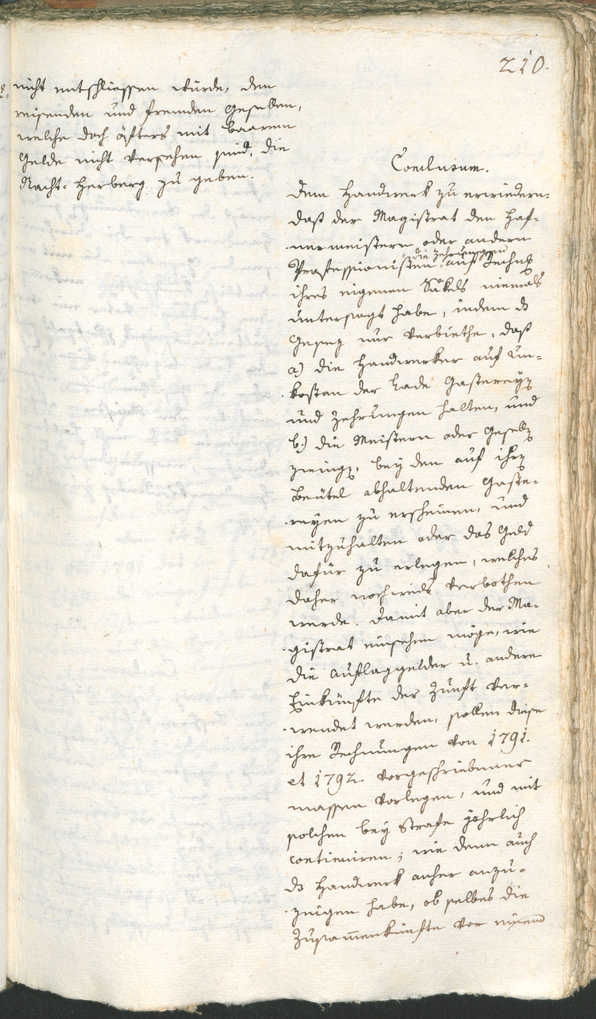 210.
nicht entschliessen würde, den
reisenden und fremden Gesellen,
welche doch öfters mit baarem
Gelde nicht versehen sind, die
Nacht-Herberg zu geben.
Conclusum.
Dem Handwerk zu erwiedern:
daß der Magistrat den Haf-
nermeistern oder andern
die Zehrungen
Professionisten auf Rechng
ihres eigenen Säkels niemals
untersagt habe, indem ds
Gesez nur verbiethe, daß
a) die Handwerker auf Un-
kosten der Lade Gastereyen
und Zehrungen halten, und
b.) die Meistern oder Gesellen
zwingen, bey den auf ihren
Beutel abhaltenden Gaste-
reyen zu erscheinen, und
mitzuhalten oder das Geld
dafür zu erlegen, welches
daher nochmals verbothen
werde. Damit aber der Ma-
gistrat einsehen möge, wie
die Auflaggelder u. andere
Einkünfte der Zunft ver-
wendet werden, sollen diese
ihre Rechnungen von 1791.
et 1792 vorgeschriebener
massen vorlegen, und mit
solchen bey Strafe jährlich
continuiren; wie denn auch
ds Handwerk anher anzu-
zeigen habe, ob selbes die
Zusammenkünfte vor